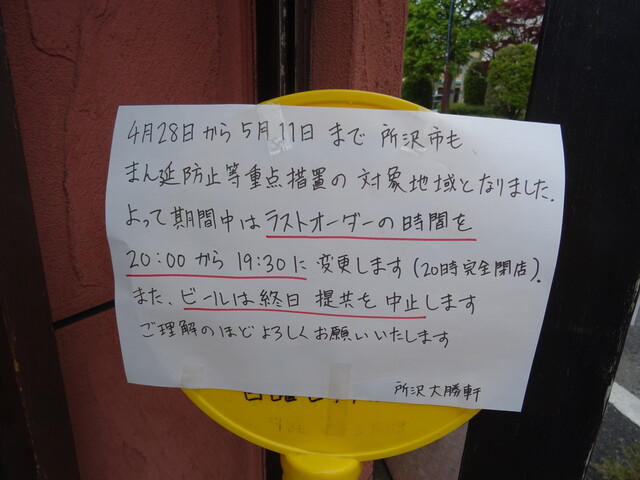 4月28日から5月11日まで所沢市も
まん延防止等重点措置の対象地域となりました.
よって期間中はラストオーダーの時間を
20:00から19:30に変更します(20時完全閉店).
また、ビールは終日提共を中止します
ご理解のほどよろしくお願いいたします
所沢大勝軒